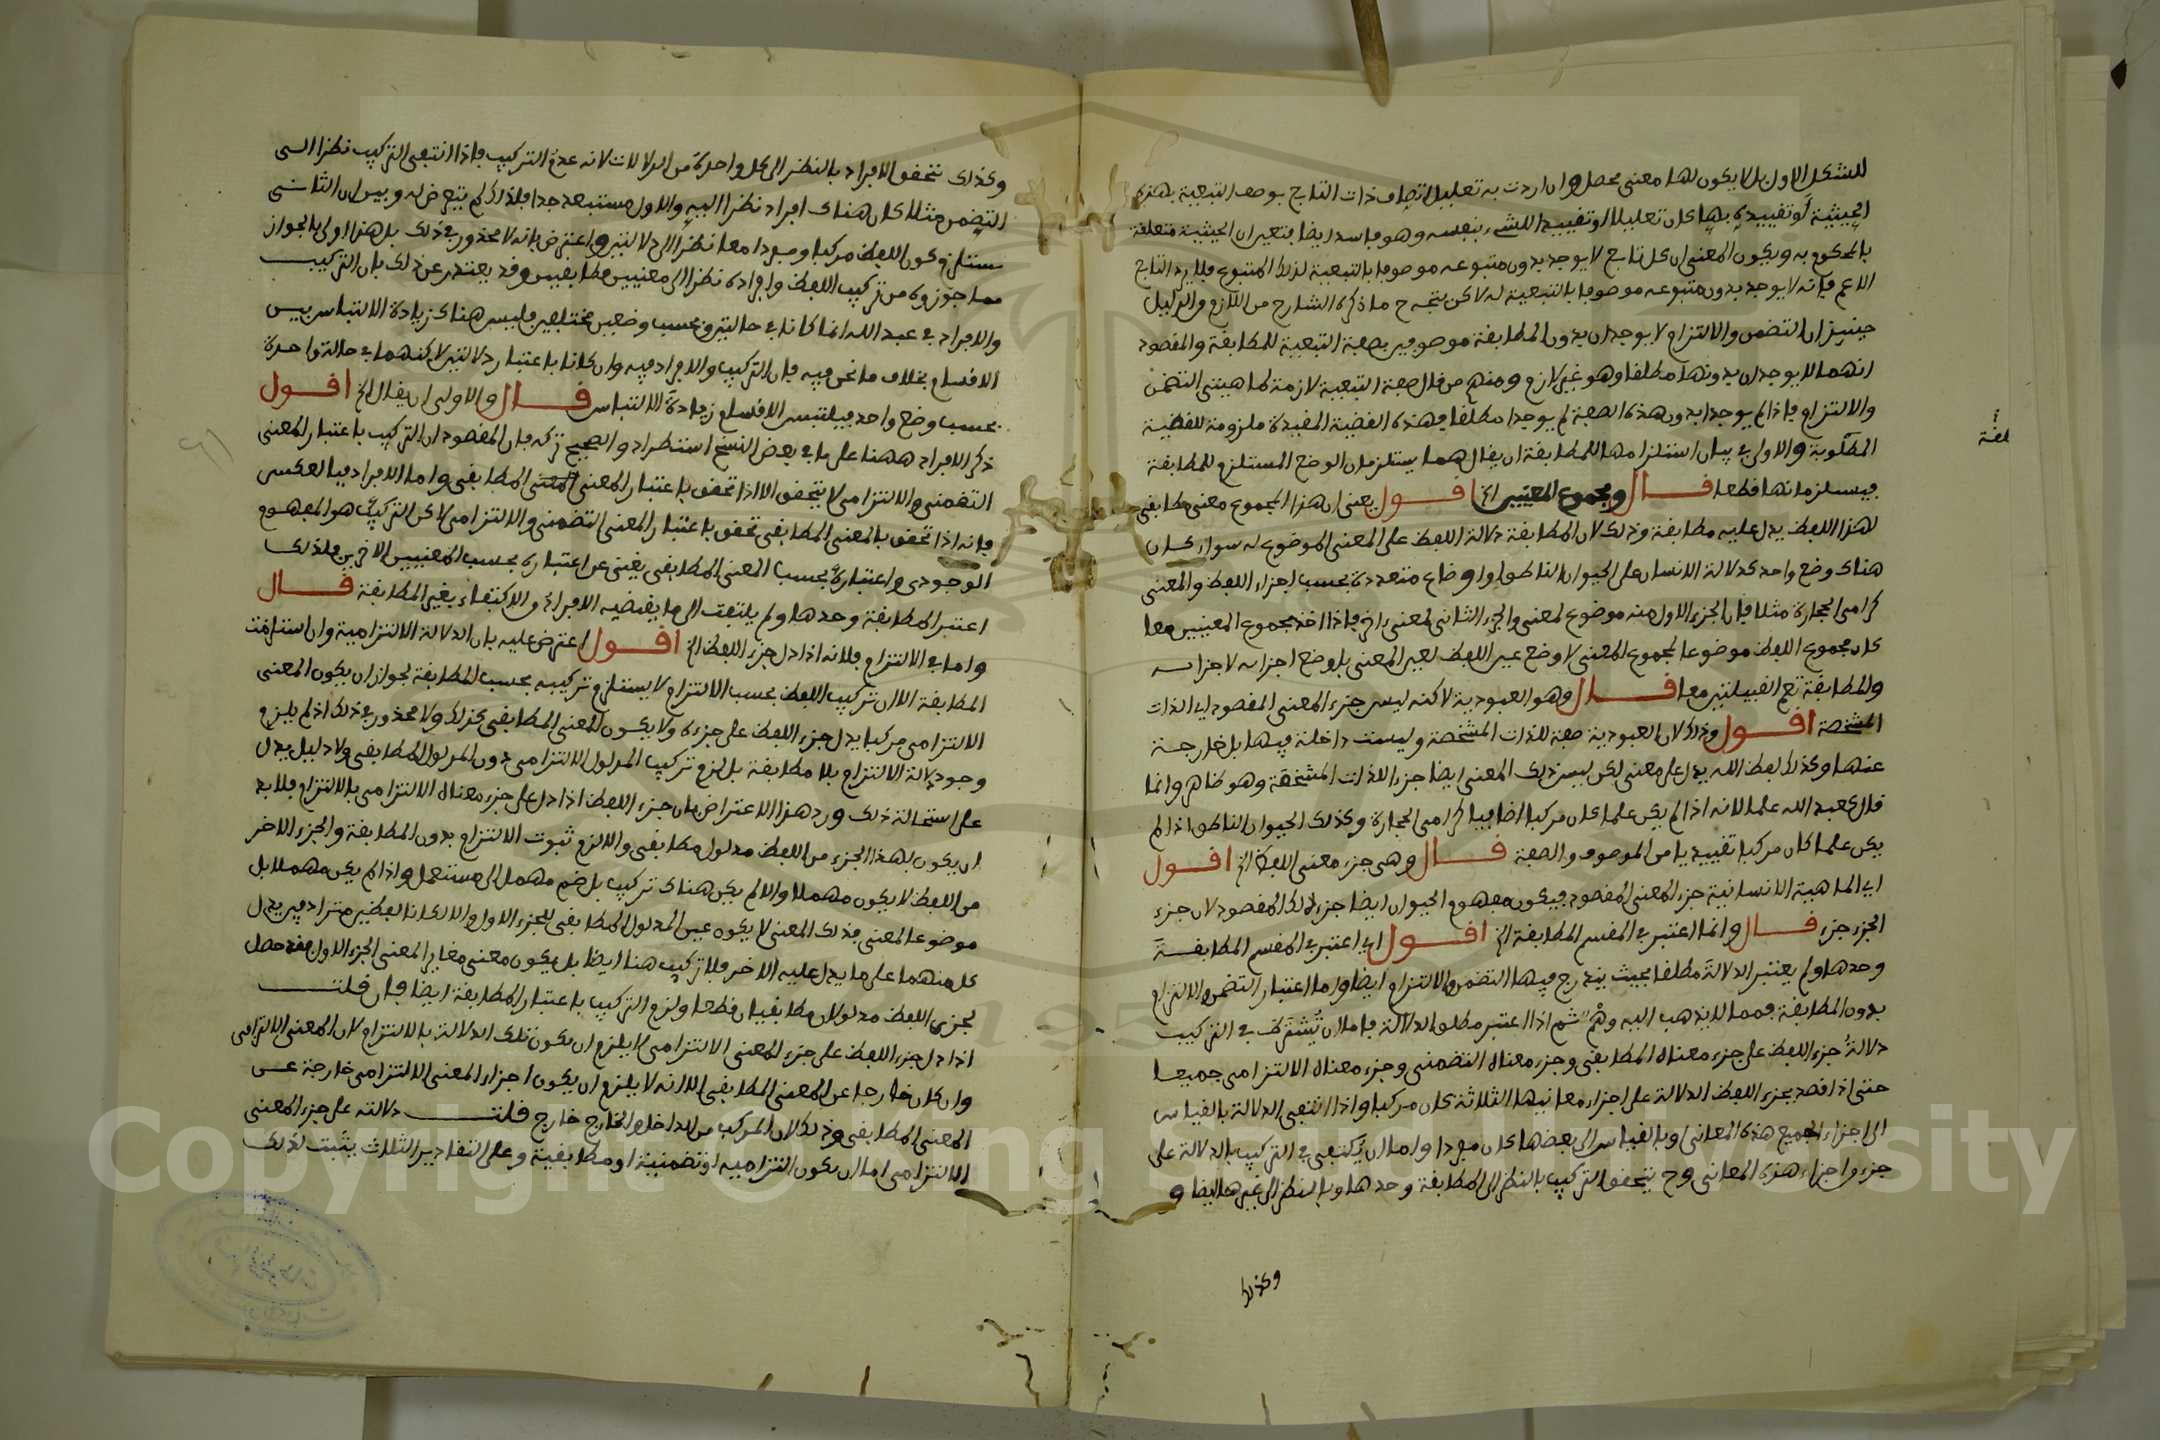 للشكل الاول بل لا يكون لها معنى محصل وان اردت به تعليل اتصاف ذات التابع بوصف التبعية بهذه
الحيثية او تقييده بها كان تعليلا او تقييدا للشيء بنفسه وهو فاسد ايضا فتعين ان الحيثية متعلقة
بالمحكوم به ويكون المعنى ان كل تابع لا يوجد بدون متبوعه موصوفا بالتبعية لذلك المتبوع فلا يرد التابع
الاعم فانه لا يوجد بدون متبوعه موصوفا بالتبعية له لاكن يتجه ح ما ذكره الشارح من اللازم والدليل
حينئذ ان التضمن والالتزام لا يوجدان بدون المطابقة موصوفين بصفة التبعية للمطابقة والمقصود
انهما لا يوجدان بدونها مطلقا وهو غير لازم ومنهم من قال صفة التبعية لازمة لماهيتي التضمن
والالتزام فاذا لم يوجدا بدون هذه الصفة لم يوجدا مطلقا فهذه القضية المقيدة ملزومة للقضية
المطلوبة والاولى في بيان استلزامها للمطابقة ان يقال هما يستلزمان الوضع المستلزم للمطابقة
فيستلزمانها قطعا قال ومجموع المعنيين الخ اقول يعني ان هذا المجموع معنى مطابقي
لهذا اللفظ يدل عليه مطابقة وذلك لان المطابقة دلالة اللفظ على المعنى الموضوع له سواء كان
هناك وضع واحد كدلالة الانسان على الحيوان الناطق او اوضاع متعددة بحسب اجزاء اللفظ والمعنى
كرامي الحجارة مثلا فان الجزء الاول منه موضوع لمعنى والجزء الثاني لمعنى اخر فاذا اخذ مجموع المعنيين معا
كان مجموع اللفظ موضوعا لمجموع المعنى لا وضع عين اللفظ لعين المعنى بل وضع اجزائه لاجزائه
والمطابقة تعم القبيلتين معا قال وهو العبودية لاكنه ليس جزء المعنى المقصود اي الذات
المشخصة اقول وذلك لان العبودية صفة للذات المشخصة وليست داخلة فيها بل خارجة
عنها وكذلك لفظ الله يدل على معنى لكن ليس ذلك المعنى ايضا جزءا للذات المشخصة وهو ظاهر وانما
قال كعبد الله علما لانه اذا لم يكن علما كان مركبا اضافيا كرامي الحجارة وكذلك الحيوان الناطق اذا لم
يكن علما كان مركبا تقييديا من الموصوف والصفة قال وهي جزء معنى اللفظ الخ اقول
اي الماهية الانسانية جزء المعنى المقصود فيكون مفهوم الحيوان ايضا جزءا لذلك المقصود لان جزء
الجزء جزء قال وانما اعتبر في المقسم المطابقة الخ اقول اي اعتبر في المقسم المطابقة
وحدها ولم يعتبر الدلالة مطلقا بحيث يندرج فيها التضمن والالتزام ايضا واما اعتبار التضمن والالتزام
بدون المطابقة فمما لا يذهب اليه وهم ثم اذا اعتبر مطلق الدلالة فاما ان تشترط في التركيب
دلالة جزء اللفظ على جزء معناه المطابقي وجزء معناه التضمني وجزء معناه الالتزامي جميعا
حتى اذا قصد بجزء اللفظ الدلالة على اجزاء معانيها الثلاثة كان مركبا واذا انتفى الدلالة بالقياس
الى اجزاء جميع هذه المعاني او بالقياس الى بعضها كان مفردا واما ان يكتفى في التركيب بالدلالة على
جزء من اجزاء هذه المعاني وح يتحقق التركيب بالنظر الى المطابقة وحدها وبالنظر الى غيرها ايضا و
وكذلك
وكذلك يتحقق الافراد بالنظر الى كل واحدة من الدلالات لانه عدم التركيب فاذا انتفى التركيب نظرا الى
التضمن مثلا كان هناك افراد نظرا اليه والاول مستبعد جدا فلذلك لم يتعرض له وبين ان الثاني
يستلزم كون اللفظ مركبا ومفردا معا نظرا الى دلالتين واعترض بانه لا محذور في ذلك بل هذا اولى بالجواز
مما جوزوه من تركيب اللفظ وافراده نظرا الى معنيين مطابقيين وقد يعتذر عن ذلك بان التركيب
والافراد في عبد الله انما كانا في حالتين وبحسب وضعين مختلفين فليس هناك زيادة الالتباس بين
الاقسام بخلاف ما نحن فيه فان التركيب والافراد فيه وان كانا باعتبار دلالتين لاكنهما في حالة واحدة
بحسب وضع واحد فيلتبس الاقسام زيادة الالتباس قال والاولى ان يقال الخ اقول
ذكر الافراد ههنا على ما في بعض النسخ استطراد والصحيح تركه فان المقصود ان التركيب باعتبار المعنى
التضمني والالتزامي لا يتحقق الا اذا تحقق باعتبار المعنى المطابقي واما الافراد فبالعكس
فانه اذا تحقق بالمعنى المطابقي تحقق باعتبار المعنى التضمني والالتزامي لاكن التركيب هو المفهوم
الوجودي واعتباره بحسب المعنى المطابقي يغني عن اعتباره بحسب المعنيين الاخرين فلذلك
اعتبر المطابقة وحدها ولم يلتفت الى ما يقتضيه الافراد والاكتفاء بغير المطابقة قال
واما في الالتزام فلانه اذا دل جزء اللفظ الخ اقول اعترض عليه بان الدلالة الالتزامية وان استلزمت
المطابقة الا ان تركيب اللفظ بحسب الالتزام لا يستلزم تركيبه بحسب المطابقة لجواز ان يكون المعنى
الالتزامي مركبا يدل جزء اللفظ على جزءه ولا يكون للمعنى المطابقي كذلك ولا محذور في ذلك اذ لم يلزم
وجود دلالة الالتزام بلا مطابقة بل لزم تركيب المدلول الالتزامي دون المدلول المطابقي ولا دليل يدل
على استحالة ذلك ورد هذا الاعتراض بان جزء اللفظ اذا دل على جزء معناه الالتزامي بالالتزام فلا بد
ان يكون لهذا الجزء من اللفظ مدلول مطابقي والا لزم ثبوت الالتزام بدون المطابقة والجزء الاخر
من اللفظ لا يكون مهملا والا لم يكن هناك تركيب بل ضم مهمل الى مستعمل واذا لم يكن مهملا بل
موضوعا لمعنى فذلك المعنى لا يكون عين المدلول المطابقي للجزء الاول والا لكانا لفظين مترادفين يدل
كل منهما على ما يدل عليه الاخر فلا تركيب هنا ايضا بل يكون معنى مغاير المعنى الجزء الاول فقد حصل
لجزءي اللفظ مدلولان مطابقيان قطعا ولزم التركيب باعتبار المطابقة ايضا فان قلت
اذا دل جزء اللفظ على جزء المعنى الالتزامي لا يلزم ان يكون تلك الدلالة بالالتزام لان المعنى الالتزامي
وان كان خارجا عن المعنى المطابقي الا انه لا يلزم ان يكون اجزاء المعنى الالتزامي خارجة عن
المعنى المطابقي وذلك لان المركب من الداخل والخارج خارج قلت دلالته على جزء المعنى
الالتزامي اما ان يكون التزامية او تضمنية او مطابقية وعلى التقادير الثلاث يثبت لذلك
Copyright © King Saud University